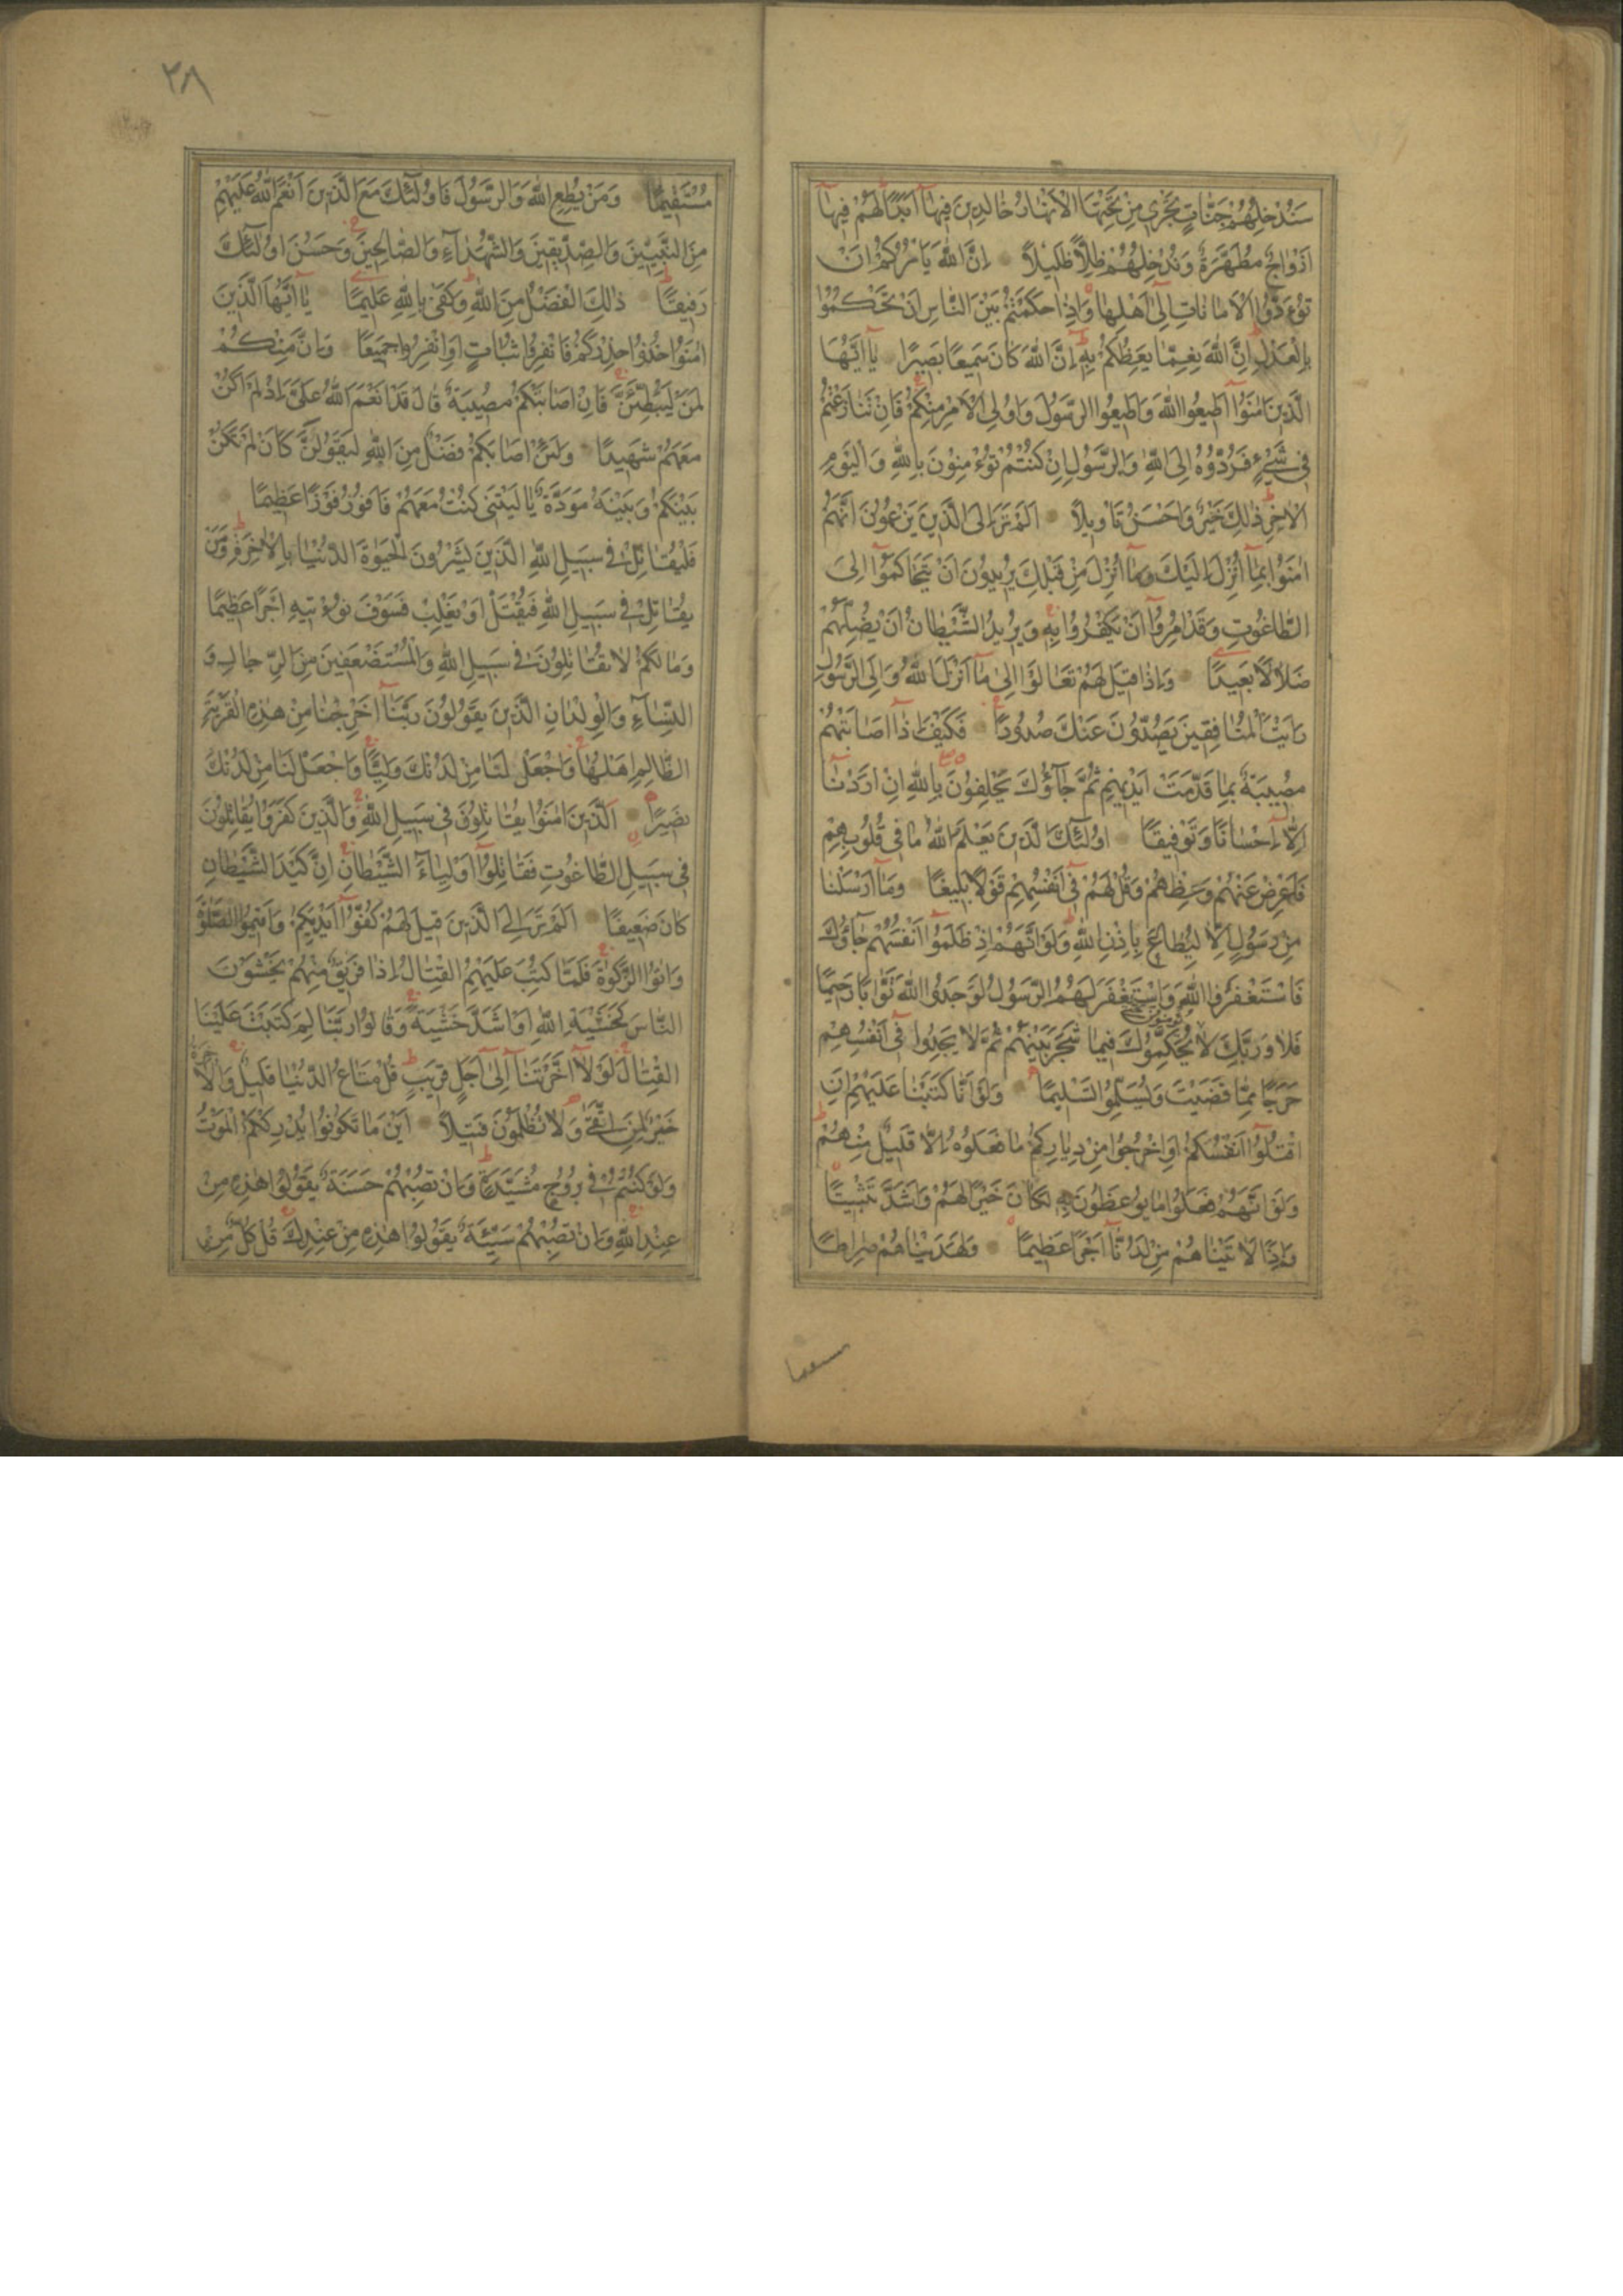 سَنُدْخِلُهُمْ جَنَّاتٍ تَجْرِي مِنْ تَحْتِهَا الْاَنْهَارُ خَالِدِينَ فِيهَآ اَبَدًا لَهُمْ فِيهَآ
اَزْوَاجٌ مُطَهَّرَةٌ وَنُدْخِلُهُمْ ظِلًّا ظَلِيلًا اِنَّ اللّٰهَ يَاْمُرُكُمْ اَنْ
تُؤَدُّوا الْاَمَانَاتِ اِلٰٓى اَهْلِهَا وَاِذَا حَكَمْتُمْ بَيْنَ النَّاسِ اَنْ تَحْكُمُوا
بِالْعَدْلِ اِنَّ اللّٰهَ نِعِمَّا يَعِظُكُمْ بِهِ اِنَّ اللّٰهَ كَانَ سَمِيعًا بَصِيرًا يَآ اَيُّهَا
الَّذِينَ اٰمَنُوٓا اَطِيعُوا اللّٰهَ وَاَطِيعُوا الرَّسُولَ وَاُولِي الْاَمْرِ مِنْكُمْ فَاِنْ تَنَازَعْتُمْ
فِي شَيْءٍ فَرُدُّوهُ اِلَى اللّٰهِ وَالرَّسُولِ اِنْ كُنْتُمْ تُؤْمِنُونَ بِاللّٰهِ وَالْيَوْمِ
الْاٰخِرِ ذٰلِكَ خَيْرٌ وَاَحْسَنُ تَاْوِيلًا اَلَمْ تَرَ اِلَى الَّذِينَ يَزْعُمُونَ اَنَّهُمْ
اٰمَنُوا بِمَآ اُنْزِلَ اِلَيْكَ وَمَآ اُنْزِلَ مِنْ قَبْلِكَ يُرِيدُونَ اَنْ يَتَحَاكَمُوٓا اِلَى
الطَّاغُوتِ وَقَدْ اُمِرُوٓا اَنْ يَكْفُرُوا بِهِ وَيُرِيدُ الشَّيْطَانُ اَنْ يُضِلَّهُمْ
ضَلَالًا بَعِيدًا وَاِذَا قِيلَ لَهُمْ تَعَالَوْا اِلٰى مَآ اَنْزَلَ اللّٰهُ وَاِلَى الرَّسُولِ
رَاَيْتَ الْمُنَافِقِينَ يَصُدُّونَ عَنْكَ صُدُودًا فَكَيْفَ اِذَآ اَصَابَتْهُمْ
مُصِيبَةٌ بِمَا قَدَّمَتْ اَيْدِيهِمْ ثُمَّ جَآؤُكَ يَحْلِفُونَ بِاللّٰهِ اِنْ اَرَدْنَآ
اِلَّآ اِحْسَانًا وَتَوْفِيقًا اُولٰٓئِكَ الَّذِينَ يَعْلَمُ اللّٰهُ مَا فِي قُلُوبِهِمْ
فَاَعْرِضْ عَنْهُمْ وَعِظْهُمْ وَقُلْ لَهُمْ فِيٓ اَنْفُسِهِمْ قَوْلًا بَلِيغًا وَمَآ اَرْسَلْنَا
مِنْ رَسُولٍ اِلَّا لِيُطَاعَ بِاِذْنِ اللّٰهِ وَلَوْ اَنَّهُمْ اِذْ ظَلَمُوٓا اَنْفُسَهُمْ جَآؤُكَ
فَاسْتَغْفَرُوا اللّٰهَ وَاسْتَغْفَرَ لَهُمُ الرَّسُولُ لَوَجَدُوا اللّٰهَ تَوَّابًا رَحِيمًا
فَلَا وَرَبِّكَ لَا يُحَكِّمُوكَ فِيمَا شَجَرَ بَيْنَهُمْ ثُمَّ لَا يَجِدُوا فِيٓ اَنْفُسِهِمْ
حَرَجًا مِمَّا قَضَيْتَ وَيُسَلِّمُوا تَسْلِيمًا وَلَوْ اَنَّا كَتَبْنَا عَلَيْهِمْ اَنِ
اقْتُلُوٓا اَنْفُسَكُمْ اَوِ اخْرُجُوا مِنْ دِيَارِكُمْ مَا فَعَلُوهُ اِلَّا قَلِيلٌ مِنْهُمْ
وَلَوْ اَنَّهُمْ فَعَلُوا مَا يُوعَظُونَ بِهِ لَكَانَ خَيْرًا لَهُمْ وَاَشَدَّ تَثْبِيتًا
وَاِذًا لَاٰتَيْنَاهُمْ مِنْ لَدُنَّآ اَجْرًا عَظِيمًا وَلَهَدَيْنَاهُمْ صِرَاطًا
٣٨
مُسْتَقِيمًا وَمَنْ يُطِعِ اللّٰهَ وَالرَّسُولَ فَاُولٰٓئِكَ مَعَ الَّذِينَ اَنْعَمَ اللّٰهُ عَلَيْهِمْ
مِنَ النَّبِيِّينَ وَالصِّدِّيقِينَ وَالشُّهَدَآءِ وَالصَّالِحِينَ وَحَسُنَ اُولٰٓئِكَ
رَفِيقًا ذٰلِكَ الْفَضْلُ مِنَ اللّٰهِ وَكَفٰى بِاللّٰهِ عَلِيمًا يَآ اَيُّهَا الَّذِينَ
اٰمَنُوا خُذُوا حِذْرَكُمْ فَانْفِرُوا ثُبَاتٍ اَوِ انْفِرُوا جَمِيعًا وَاِنَّ مِنْكُمْ
لَمَنْ لَيُبَطِّئَنَّ فَاِنْ اَصَابَتْكُمْ مُصِيبَةٌ قَالَ قَدْ اَنْعَمَ اللّٰهُ عَلَيَّ اِذْ لَمْ اَكُنْ
مَعَهُمْ شَهِيدًا وَلَئِنْ اَصَابَكُمْ فَضْلٌ مِنَ اللّٰهِ لَيَقُولَنَّ كَاَنْ لَمْ تَكُنْ
بَيْنَكُمْ وَبَيْنَهُ مَوَدَّةٌ يَا لَيْتَنِي كُنْتُ مَعَهُمْ فَاَفُوزَ فَوْزًا عَظِيمًا
فَلْيُقَاتِلْ فِي سَبِيلِ اللّٰهِ الَّذِينَ يَشْرُونَ الْحَيٰوةَ الدُّنْيَا بِالْاٰخِرَةِ وَمَنْ
يُقَاتِلْ فِي سَبِيلِ اللّٰهِ فَيُقْتَلْ اَوْ يَغْلِبْ فَسَوْفَ نُؤْتِيهِ اَجْرًا عَظِيمًا
وَمَا لَكُمْ لَا تُقَاتِلُونَ فِي سَبِيلِ اللّٰهِ وَالْمُسْتَضْعَفِينَ مِنَ الرِّجَالِ وَ
النِّسَآءِ وَالْوِلْدَانِ الَّذِينَ يَقُولُونَ رَبَّنَآ اَخْرِجْنَا مِنْ هٰذِهِ الْقَرْيَةِ
الظَّالِمِ اَهْلُهَا وَاجْعَلْ لَنَا مِنْ لَدُنْكَ وَلِيًّا وَاجْعَلْ لَنَا مِنْ لَدُنْكَ
نَصِيرًا اَلَّذِينَ اٰمَنُوا يُقَاتِلُونَ فِي سَبِيلِ اللّٰهِ وَالَّذِينَ كَفَرُوا يُقَاتِلُونَ
فِي سَبِيلِ الطَّاغُوتِ فَقَاتِلُوٓا اَوْلِيَآءَ الشَّيْطَانِ اِنَّ كَيْدَ الشَّيْطَانِ
كَانَ ضَعِيفًا اَلَمْ تَرَ اِلَى الَّذِينَ قِيلَ لَهُمْ كُفُّوٓا اَيْدِيَكُمْ وَاَقِيمُوا الصَّلٰوةَ
وَاٰتُوا الزَّكٰوةَ فَلَمَّا كُتِبَ عَلَيْهِمُ الْقِتَالُ اِذَا فَرِيقٌ مِنْهُمْ يَخْشَوْنَ
النَّاسَ كَخَشْيَةِ اللّٰهِ اَوْ اَشَدَّ خَشْيَةً وَقَالُوا رَبَّنَا لِمَ كَتَبْتَ عَلَيْنَا
الْقِتَالَ لَوْلَآ اَخَّرْتَنَآ اِلٰٓى اَجَلٍ قَرِيبٍ قُلْ مَتَاعُ الدُّنْيَا قَلِيلٌ وَالْاٰخِرَةُ
خَيْرٌ لِمَنِ اتَّقٰى وَلَا تُظْلَمُونَ فَتِيلًا اَيْنَ مَا تَكُونُوا يُدْرِكْكُمُ الْمَوْتُ
وَلَوْ كُنْتُمْ فِي بُرُوجٍ مُشَيَّدَةٍ وَاِنْ تُصِبْهُمْ حَسَنَةٌ يَقُولُوا هٰذِهِ مِنْ
عِنْدِ اللّٰهِ وَاِنْ تُصِبْهُمْ سَيِّئَةٌ يَقُولُوا هٰذِهِ مِنْ عِنْدِكَ قُلْ كُلٌّ مِنْ